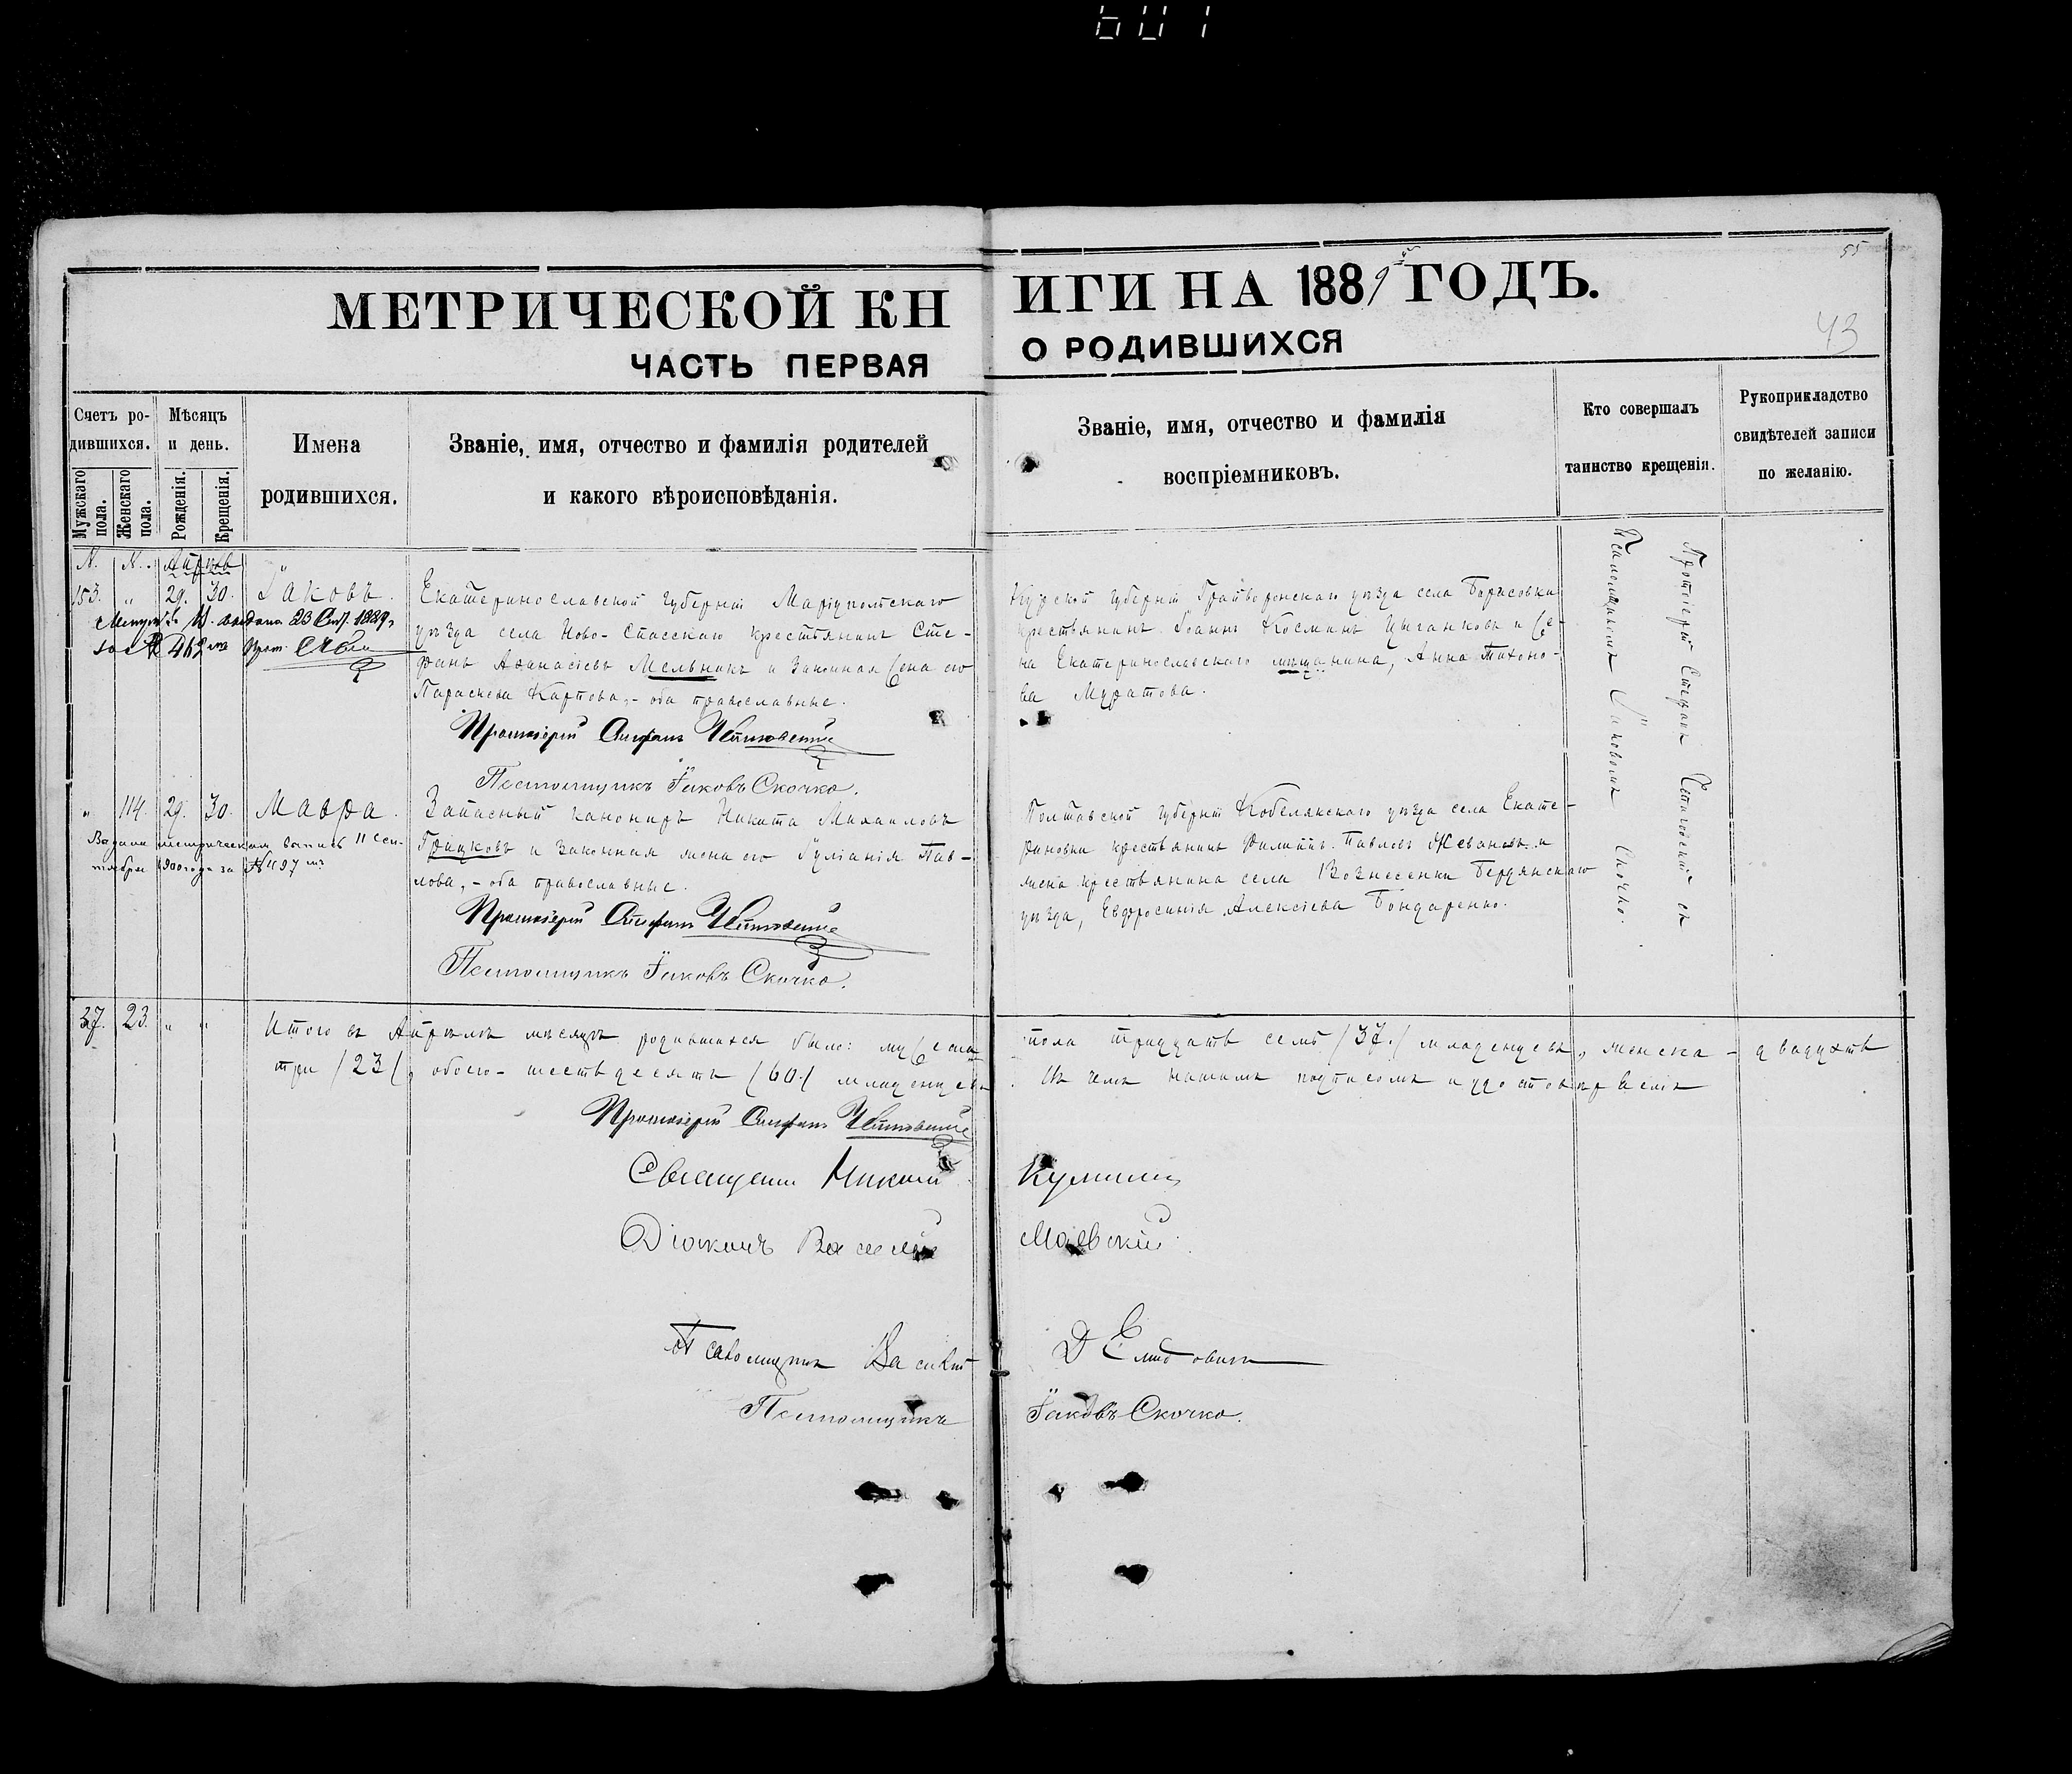 601
55
МЕТРИЧЕСКОЙ КНИГИ НА 1889й ГОДЪ.
43
ЧАСТЬ ПЕРВАЯ О РОДИВШИХСЯ
Счетъ ро-
дившихся.
Мужскаго пола.
Женскаго пола.
Мѣсяцъ
и день.
Рожденія.
Крещенія.
Имена
родившихся.
Званіе, имя, отчество и фамилія родителей
и какого вѣроисповѣданія.
Званіе, имя, отчество и фамилія
воспріемниковъ.
Кто совершалъ
таинство крещенія.
Рукоприкладство
свидѣтелей записи
по желанію.
N. N. Апрѣль
153. " 29. 30. Іаковъ.
выдана 23 1889
462
Екатеринославской губерніи Маріупольскаго
уѣзда села Ново-Спасскаго крестьянинъ Сте-
фанъ Аѳанасіевъ Мельникъ и законная жена его
Параскева Карпова, - оба православные.
Протоіерей Стефанъ
Псаломщикъ Іаковъ Скочко.
Курской губерніи Грайворонскаго уѣзда села Борисовки
крестьянинъ Іоаннъ Косминъ Цыганковъ и же-
на Екатеринославскаго мѣщанина, Анна Тихоно-
ва Муратова.
Протоіерей Стефанъ съ
Псаломщикомъ Іаковомъ Скочко.
" 114. 29. 30. Мавра.
Выдана метрическая выпись 11 Сен-
тября 1900 года за №497
Запасный канониръ Никита Михаиловъ
Грицковъ и законная жена его Іуліанія Пав-
лова, - оба православные.
Протоіерей Стефанъ
Псаломщикъ Іаковъ Скочко.
Полтавской губерніи Кобелякскаго уѣзда села Екате-
риновки крестьянинъ Филиппъ Павловъ и
жена крестьянина села Вознесенки Бердянскаго
уѣзда, Евфросинія Алексіева Бондаренко.
37. 23. " " Итого въ Апрѣлѣ мѣсяцѣ родившихся было: мужеска пола тридцать семь /37./ младенцевъ, женска - двадцать
три /23/, обоего - шестьдесятъ /60./ младенцевъ. Въ чемъ нашимъ подписомъ и удостовѣряемъ
Протоіерей Стефанъ
Священ. Никол
Діаконъ Василій Маевскій
Псаломщикъ Василій
Псаломщикъ Іаковъ Скочко.